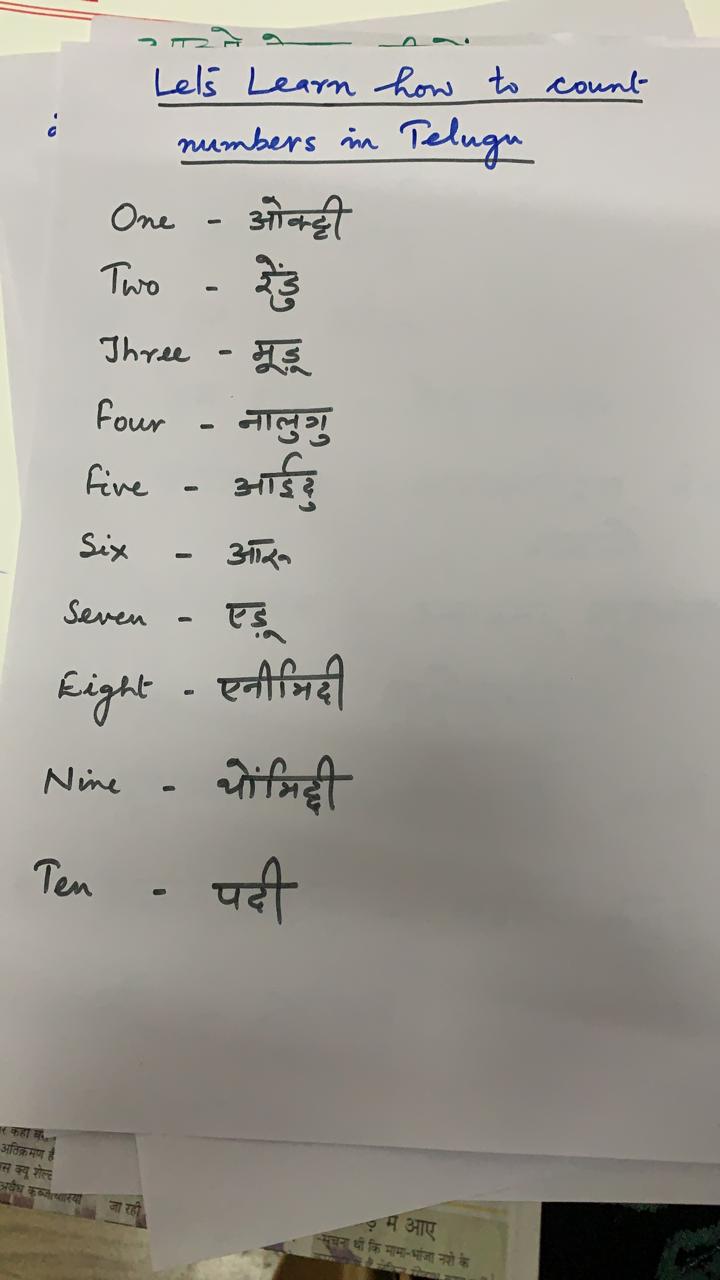 Let's Learn how to count
numbers in Telugu
One - ओक्ट्टी
Two - रेंडु
Three - मूड़ू
Four - नालुगु
Five - आईदु
Six - आरु
Seven - एड़ू
Eight - एनीमिदी
Nine - थोंमिद्दी
Ten - पदी
अतिक्रमण है
जा रही
में आए
-सूचना थी कि मामा-भांजा नशे के